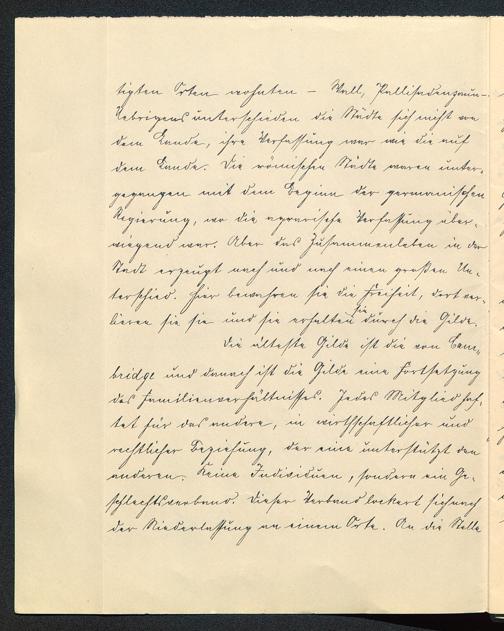 tigten Orten wohnten – Wall, Pallisadenzaun.
Uebrigens unterschieden die Städte sich nicht von
dem Lande, ihre Verfassung war wie die auf
dem Lande. Die römischen Städte waren unter-
gegangen mit dem Beginn der germanischen
Regierung, wo die agrarische Verfassung über-
wiegend war. Aber das Zusammenleben in der
Stadt erzeugt nach und nach einen großen Un-
terschied. Hier bewahren sie die Freiheit, dort ver-
lieren sie sie und sie erhalten sie durch die Gilde.
Die älteste Gilde ist die von Cam-
bridge und danach ist die Gilde eine Fortsetzung
des Familienverhältnisses. Jedes Mitglied haf-
tet für das andere, in wirthschaftlicher und
rechtlicher Beziehung, der eine unterstützt den
anderen. Keine Individuen, sondern ein Ge-
schlechtsverband. Dieser Verband lockert sich nach
der Niederlassung an einem Orte. An die Stelle